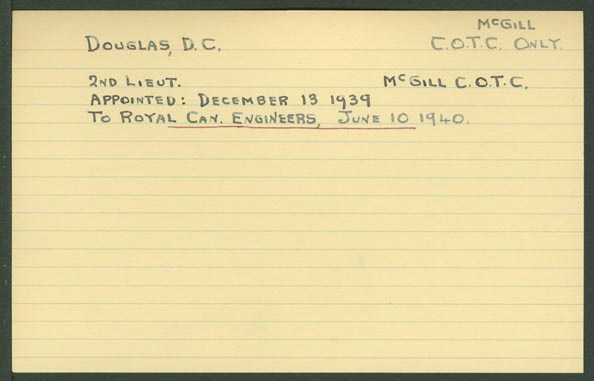 McGILL
DOUGLAS, D.C. C.O.T.C. ONLY.
2ND LIEUT. McGILL C.O.T.C.
APPOINTED: DECEMBER 13 1939
TO ROYAL CAN. ENGINEERS, JUNE 10 1940.